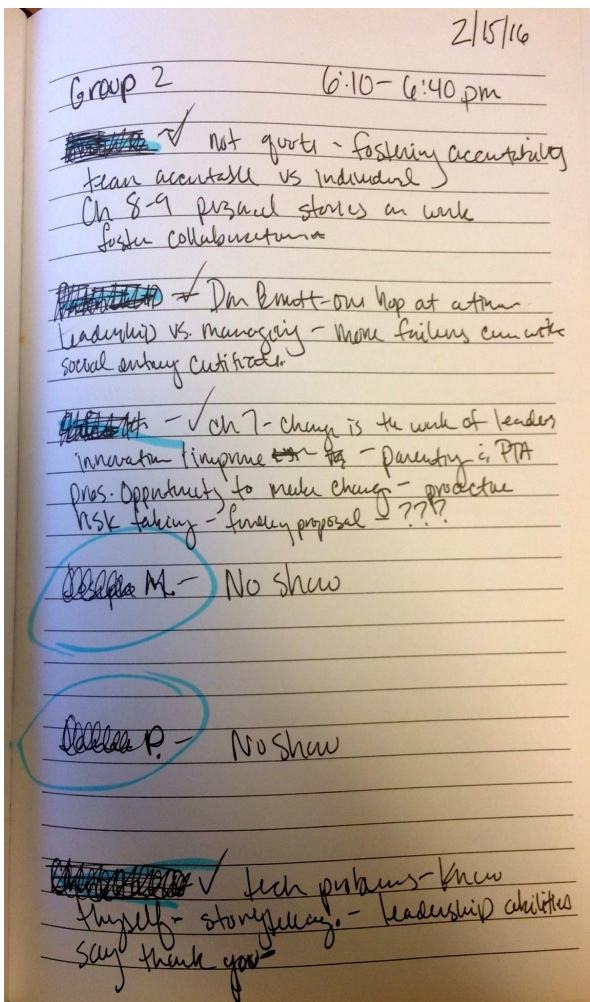 2/15/16
Group 2 6:10 - 6:40 pm
✓ not quote - fostering accountability
team accountable vs individual
Ch 8-9 personal stories on work
foster collaboration
✓ - one hop at a time
Leadership vs. managing - more failures
social
- ✓ ch 7 - change is the work of leaders
innovation improve - parenting PTA
pres. Opportunity to make change - proactive
risk taking - proposal - ???
M. - No show
P. - No show
✓ tech problems - Know
thyself - storytelling. - leadership abilities
say thank you -